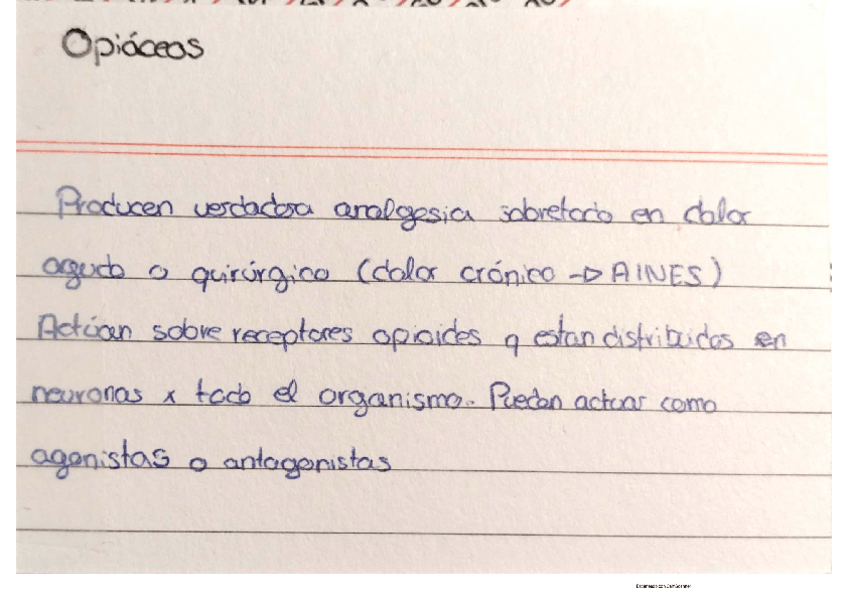 Opiáceos
Producen verdadera analgesia sobretodo en dolor
agudo o quirúrgico (dolor crónico → AINES)
Actúan sobre receptores opioides q estan distribuidos en
neuronas x todo el organismo. Pueden actuar como
agonistas o antagonistas
Escaneado con CamScanner